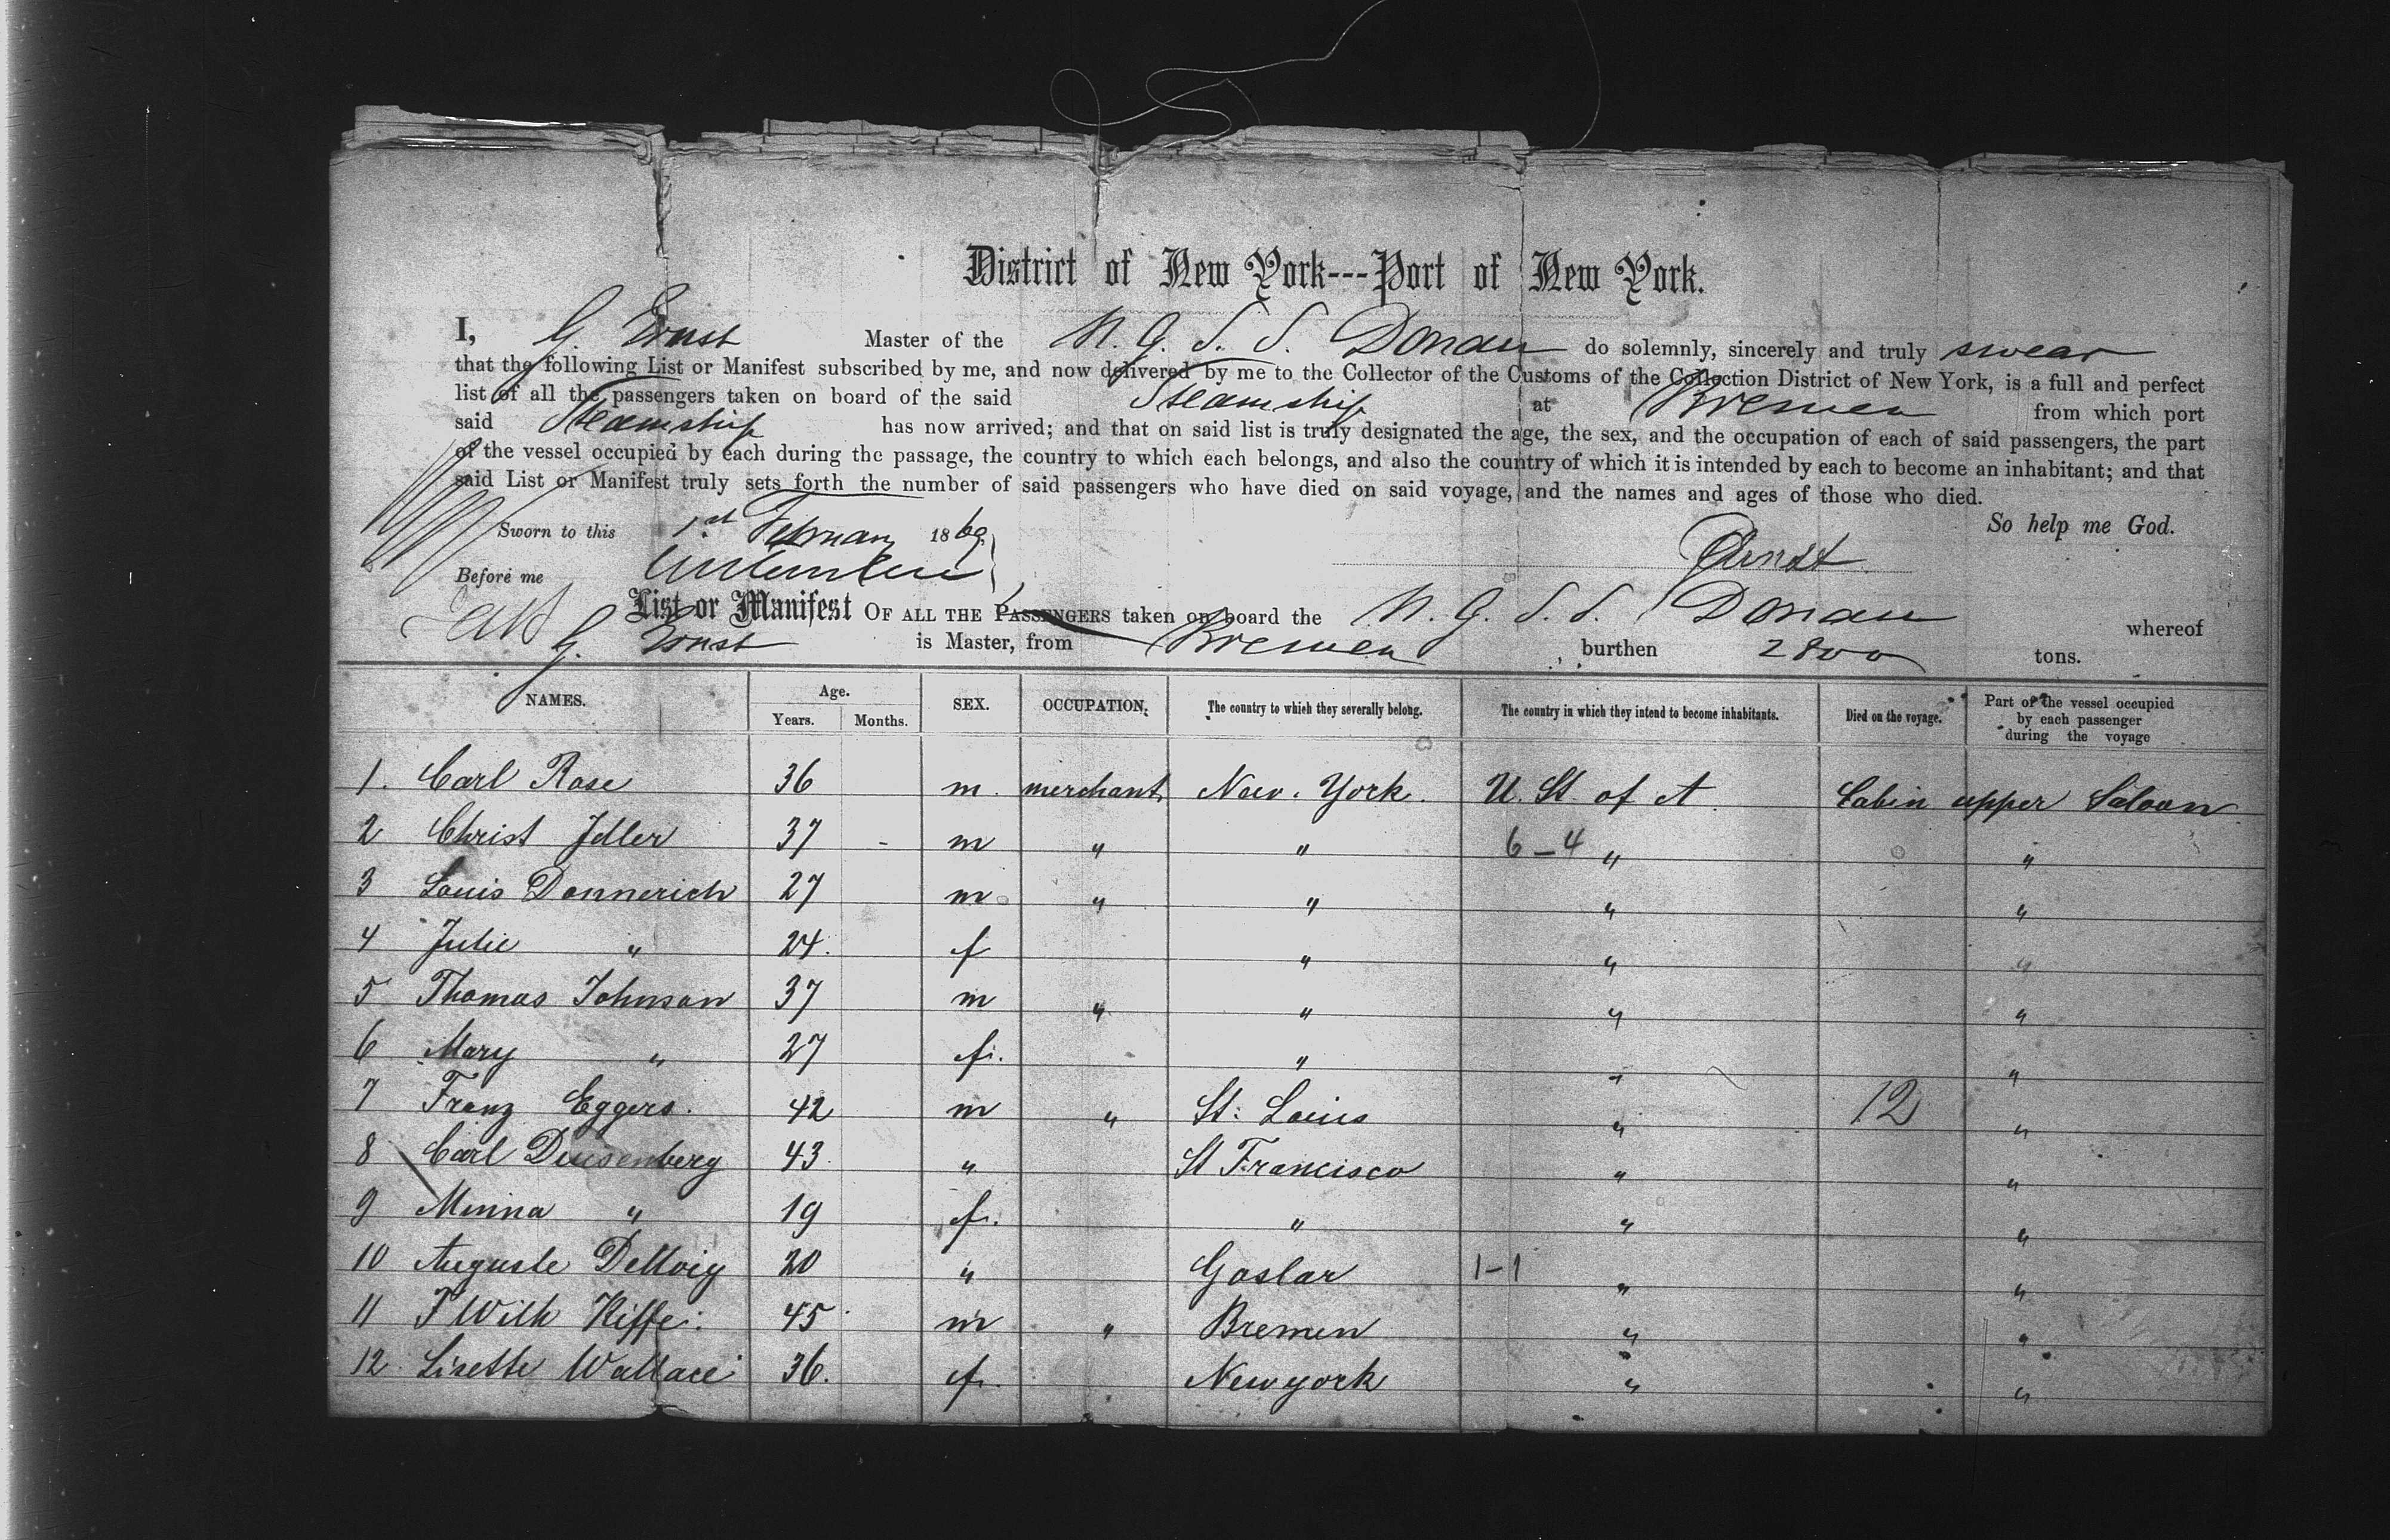 District of New York---Port of New York.
I, G. Ernst Master of the N. G. S. S. Donau do solemnly, sincerely and truly swear
that the following List or Manifest subscribed by me, and now delivered by me to the Collector of the Customs of the Collection District of New York, is a full and perfect
list of all the passengers taken on board of the said Steamship at Bremen from which port
said Steamship has now arrived; and that on said list is truly designated the age, the sex, and the occupation of each of said passengers, the part
of the vessel occupied by each during the passage, the country to which each belongs, and also the country of which it is intended by each to become an inhabitant; and that
said List or Manifest truly sets forth the number of said passengers who have died on said voyage, and the names and ages of those who died.
So help me God.
Sworn to this 1st February 1869
Ernst
Before me
List or Manifest OF ALL THE PASSENGERS taken on board the N. G. S. S. Donau whereof
G. Ernst is Master, from Bremen , burthen 2800 tons.
NAMES. Age. Years. Months. SEX. OCCUPATION. The country to which they severally belong. The country in which they intend to become inhabitants. Died on the voyage. Part of the vessel occupied by each passenger during the voyage
1. Carl Rose 36 m. merchant New. York. U. St. of A. Cabin upper Saloon
2 Christ Idler 37 - m " " 6-4 " "
3 Louis Donnerich 27 m " " " "
4 Julie " 24. f " " "
5 Thomas Johnson 37 m " " " "
6 Mary " 27 f. " " "
7 Franz Eggers. 42 m " St: Louis " 12 "
8 Carl Duisenberg 43 " St Francisco " "
9 Minna " 19 f. " " "
10 Auguste Dellvig 20 " Goslar 1-1 " "
11 F Wilh Kiffe. 45 m " Bremen " "
12. Lisette Wallace 36. f. Newyork " "